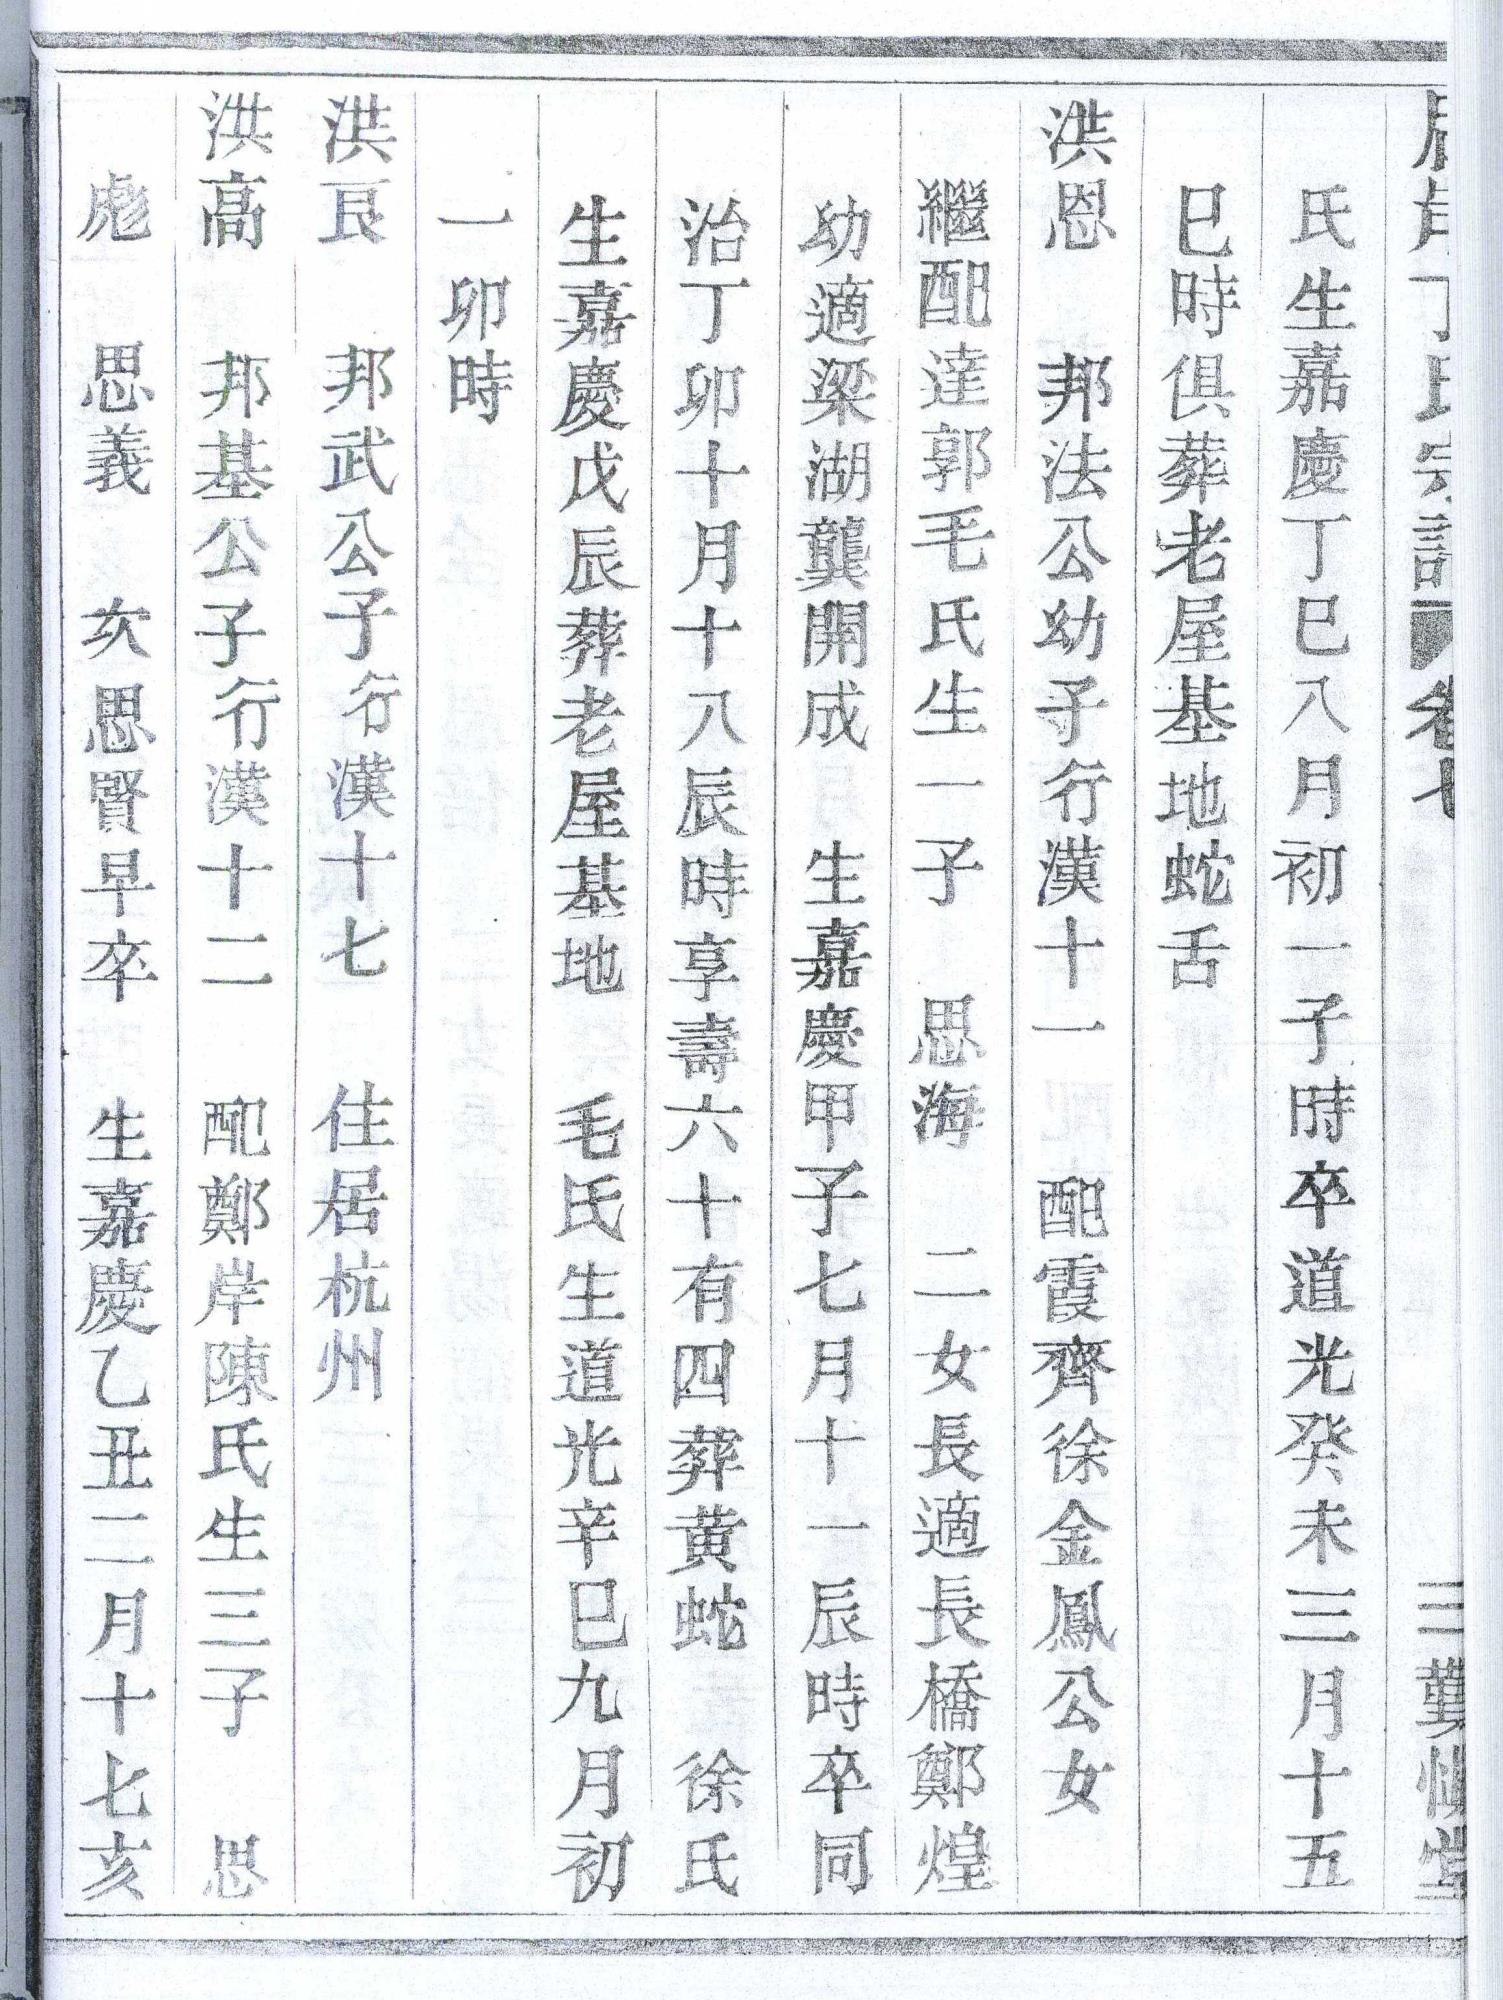 丁氏宗譜 卷七 三 勤慎堂
氏生嘉慶丁巳八月初一子時卒道光癸未三月十五
巳時俱葬老屋基地蛇舌
洪恩 邦法公幼子行漢十一 配霞齊徐金鳳公女
繼配達郭毛氏生一子 思海 二女長適長橋鄭煌
幼適梁湖龔開成 生嘉慶甲子七月十一辰時卒同
治丁卯十月十八辰時享壽六十有四葬黄蛇 徐氏
生嘉慶戊辰葬老屋基地 毛氏生道光辛巳九月初
一卯時
洪良 邦武公子行漢十七 住居杭州
洪高 邦基公子行漢十二 配鄭岸陳氏生三子 思
彪 思義 次思賢早卒 生嘉慶乙丑二月十七亥